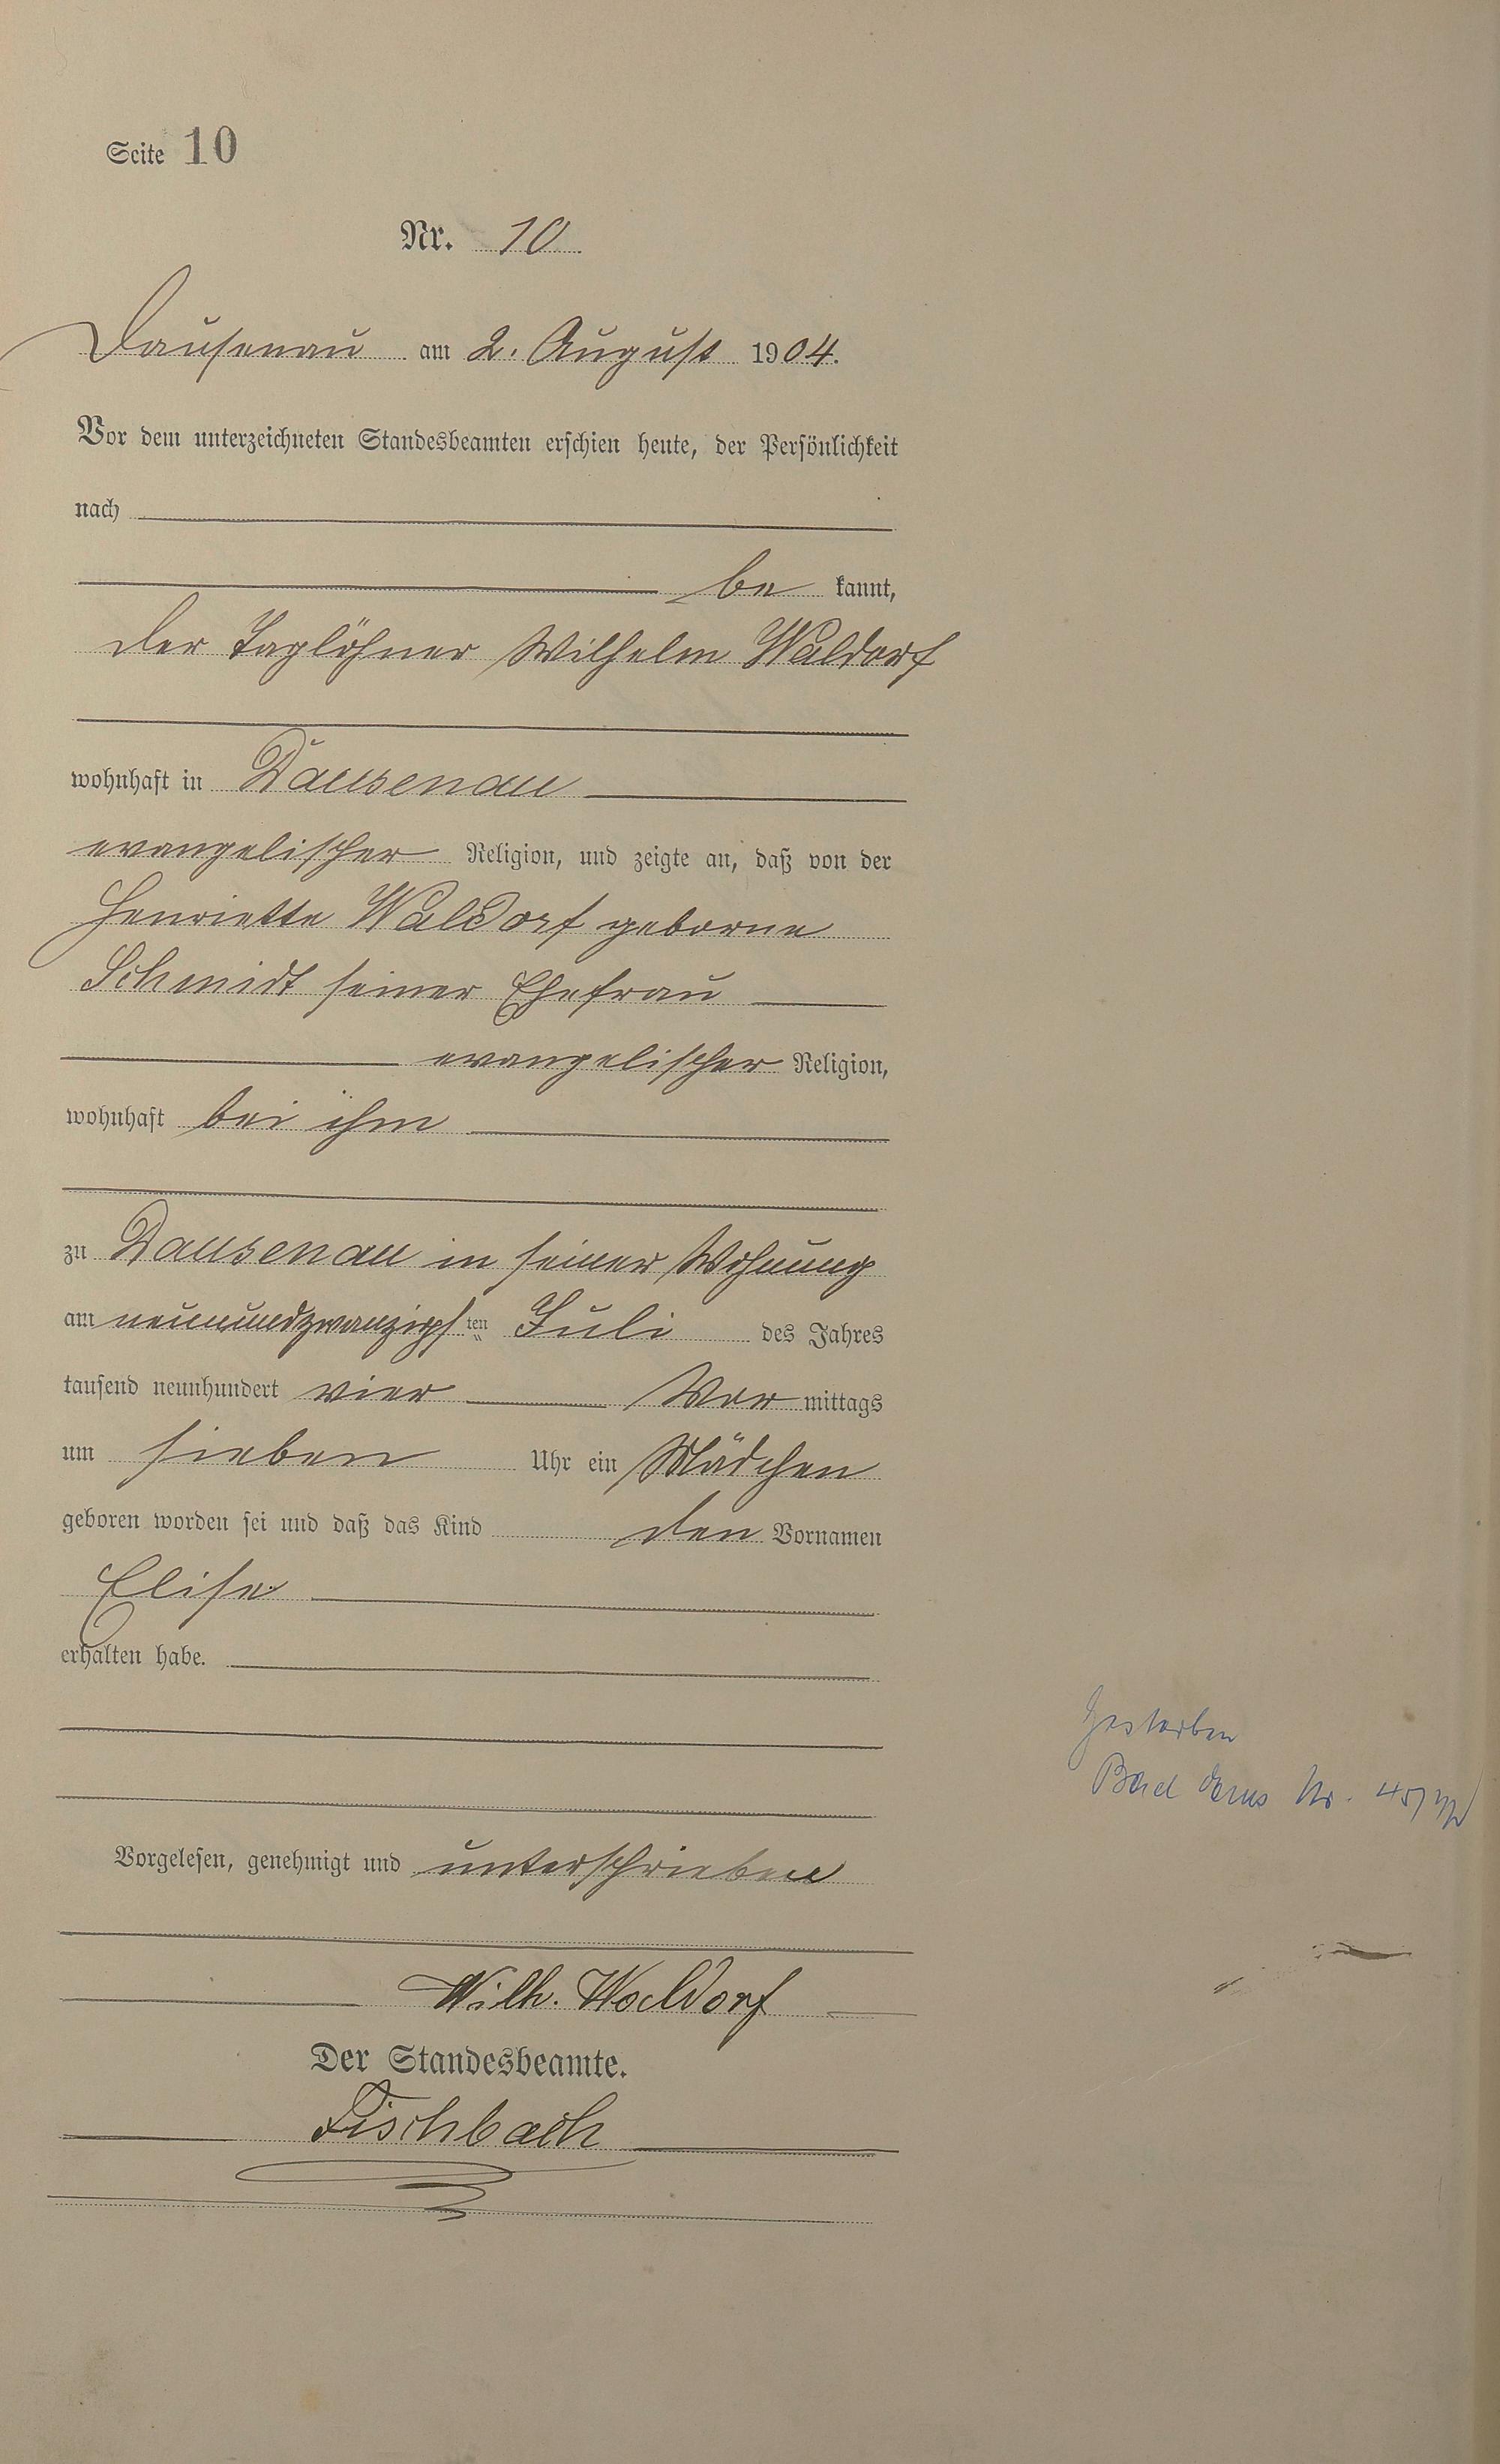 Seite 10
Nr. 10
Dausenau am 2. August 1904.
Vor dem unterzeichneten Standesbeamten erschien heute, der Persönlichkeit
nach
be kannt,
der Taglöhner Wilhelm Waldorf
wohnhaft in Dausenau
evangelischer Religion, und zeigte an, daß von der
Henriette Waldorf geborne
Schmidt seiner Ehefrau
evangelischer Religion,
wohnhaft bei ihm
zu Dausenau in seiner Wohnung
am neunundzwanzigsten Juli des Jahres
tausend neunhundert vier Vor mittags
um sieben Uhr ein Mädchen
geboren worden sei und daß das Kind den Vornamen
Elise
erhalten habe.
Gestorben
Bad Ems Nr.
Vorgelesen, genehmigt und unterschrieben
Wilh. Waldorf
Der Standesbeamte.
Fischbach